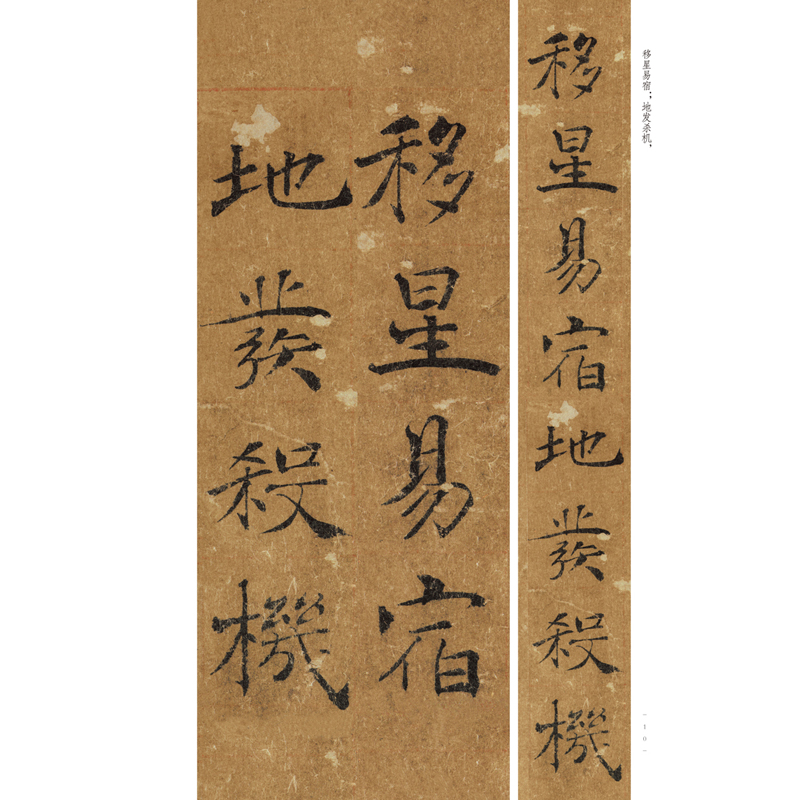 移星易宿；地发杀机，
移星易宿地發殺機
移星易宿
地發殺機
~10~